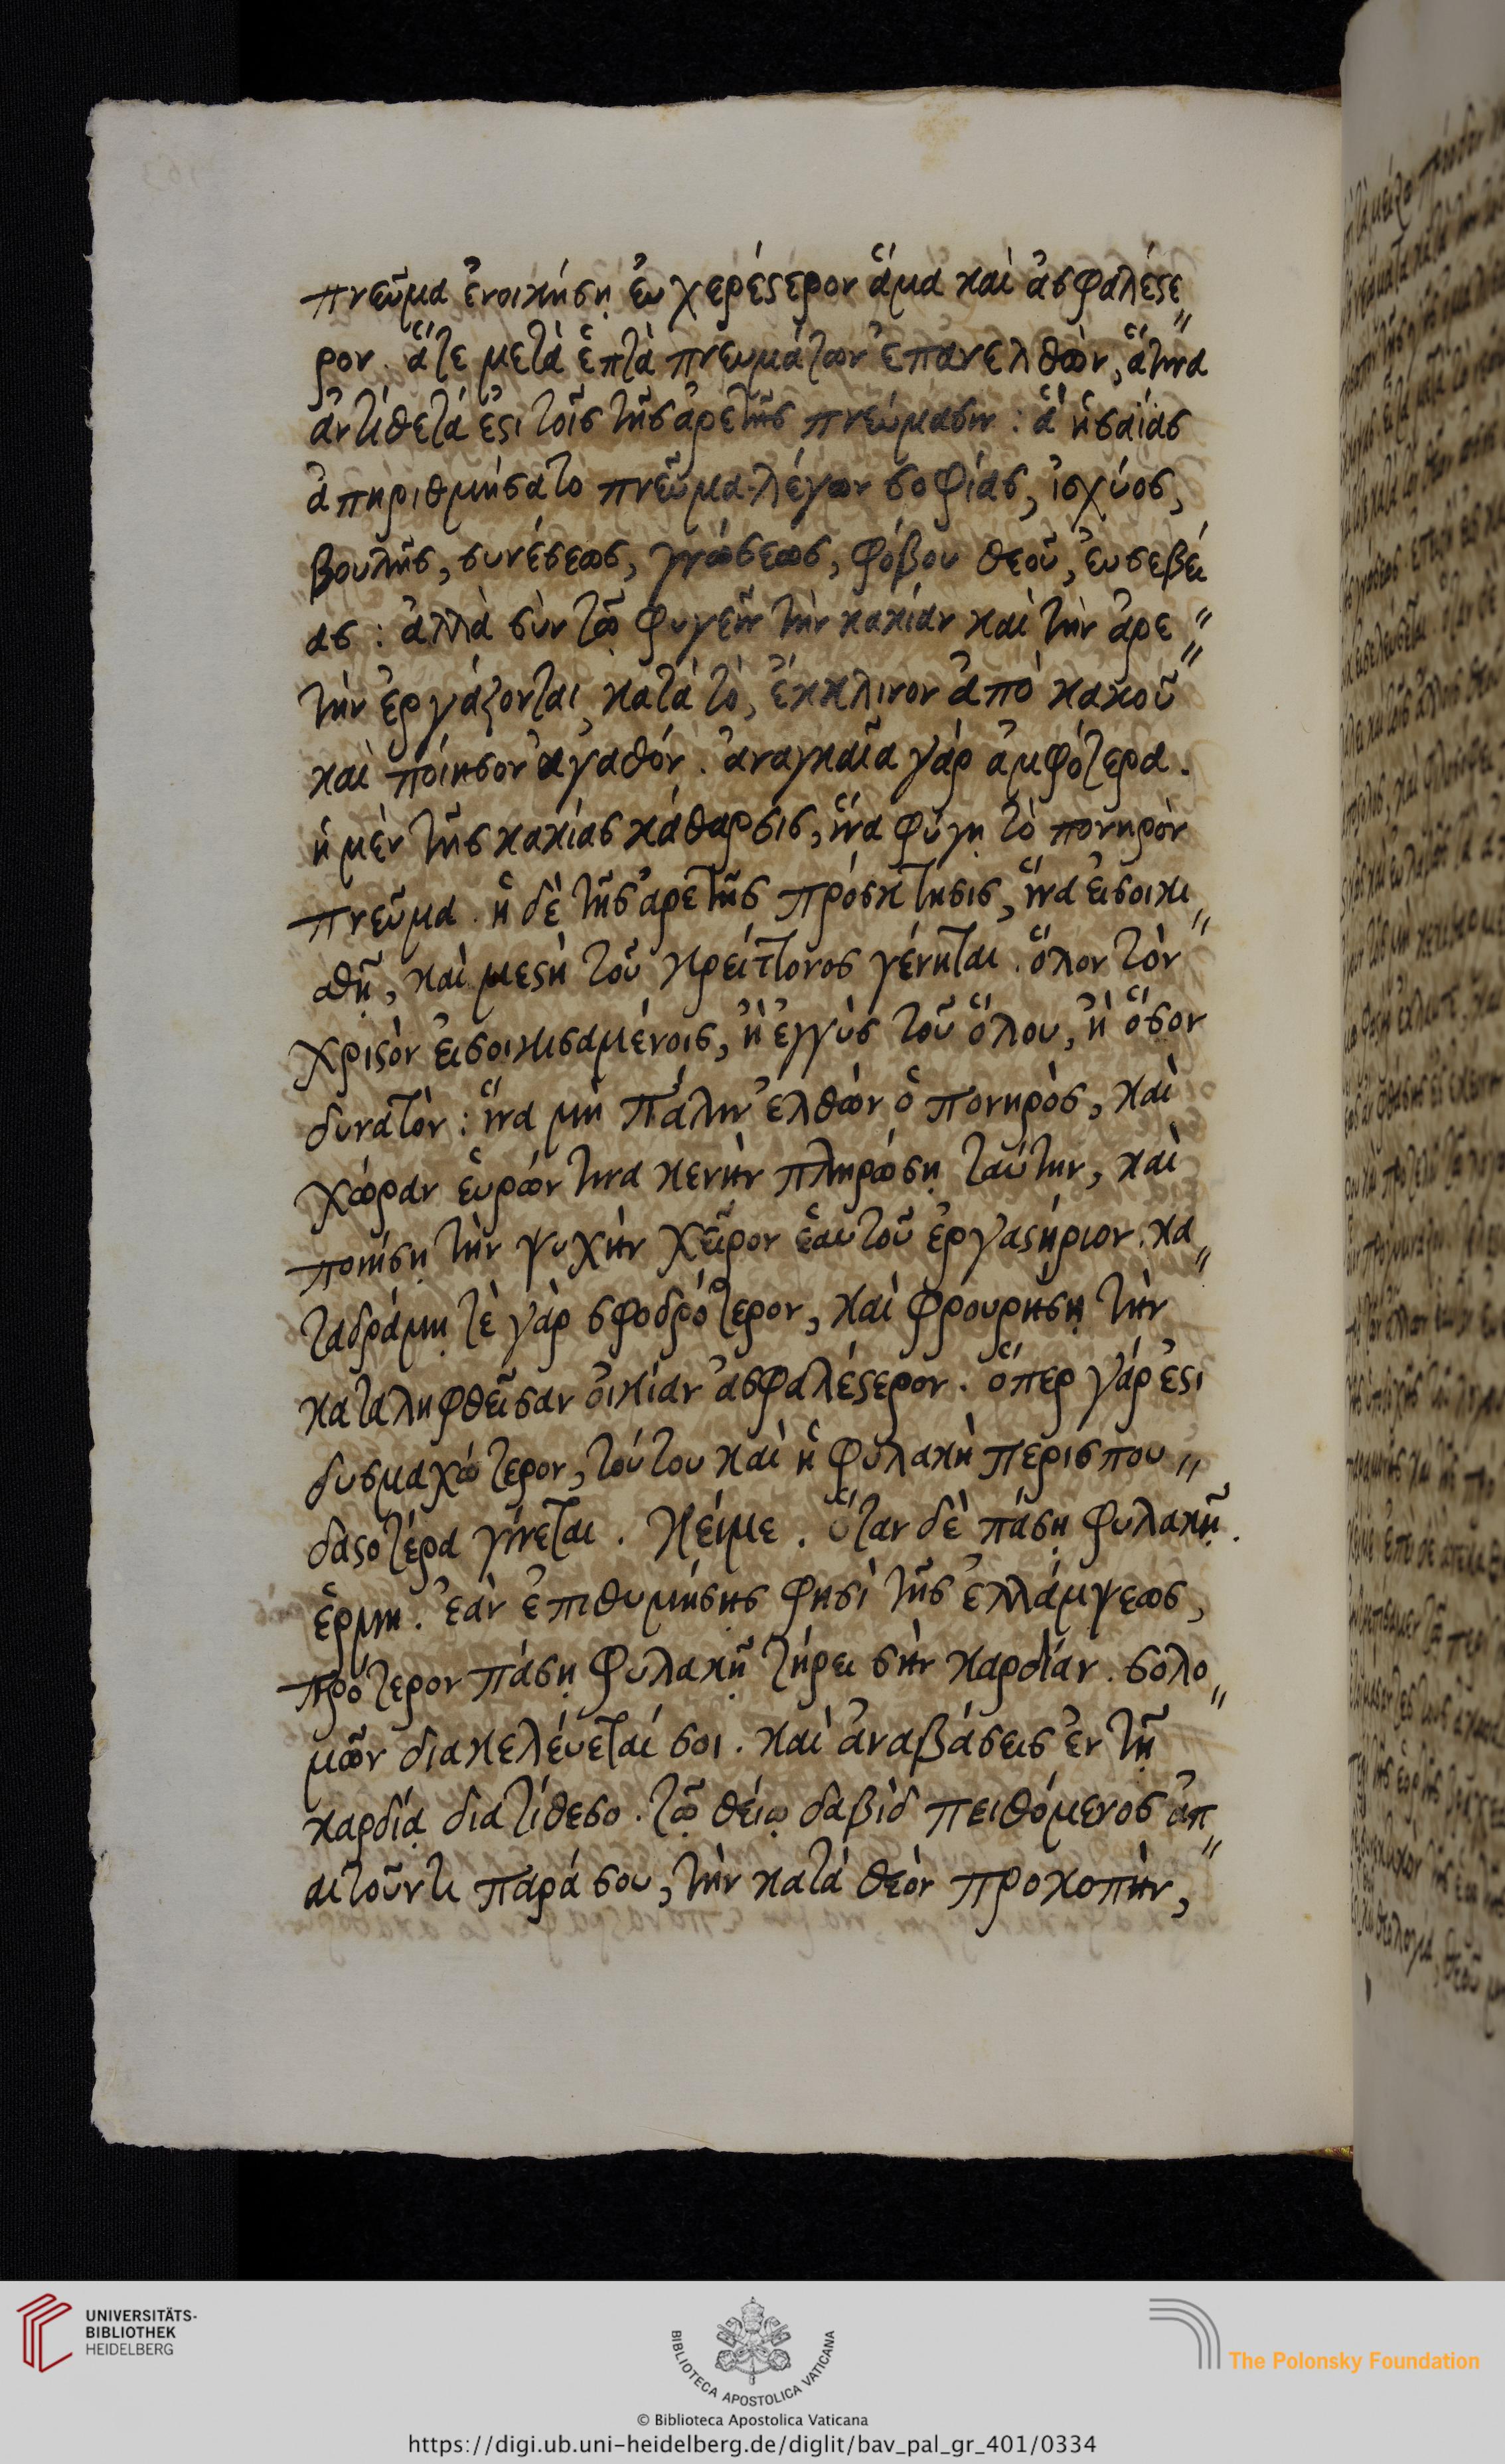 πνεῦμα ἐνοικήσῃ εὐχερέστερον ἅμα καὶ ἀσφαλέστε
ρον. ἅτε μετὰ ἑπτὰ πνευμάτων ἐπανελθὼν, ἅτινα
ἀντίθετά ἐστι τοῖς τῆς ἀρετῆς πνεύμασιν : ἃ ἡσαΐας
ἀπηριθμήσατο πνεῦμα λέγων σοφίας, ἰσχύος,
βουλῆς, συνέσεως, γνώσεως, φόβου θεοῦ, εὐσεβεί
ας : ἀλλὰ σὺν τῷ φυγεῖν τὴν κακίαν καὶ τὴν ἀρε
τὴν ἐργάζονται, κατὰ τὸ, ἔκκλινον ἀπὸ κακοῦ
καὶ ποίησον ἀγαθόν. ἀναγκαῖα γὰρ ἀμφότερα.
ἡ μὲν τῆς κακίας κάθαρσις, ἵνα φύγῃ τὸ πονηρὸν
πνεῦμα. ἡ δὲ τῆς ἀρετῆς πρόσκτησις, ἵνα εἰσοικι
σθῇ, καὶ μεστὴ τοῦ κρείττονος γένηται. ὅλον τὸν
χριστὸν εἰσοικισαμένοις, ἢ ἐγγὺς τοῦ ὅλου, ἢ ὅσον
δυνατὸν : ἵνα μὴ πάλιν ἐλθὼν ὁ πονηρὸς, καὶ
χώραν εὑρών τινα κενὴν πληρώσῃ ταύτην, καὶ
ποιήσῃ τὴν ψυχὴν χεῖρον ἑαυτοῦ ἐργαστήριον. κα
ταδράμῃ τὲ γὰρ σφοδρότερον, καὶ φρουρήσῃ τὴν
καταληφθεῖσαν οἰκίαν ἀσφαλέστερον. ὅπερ γάρ ἐστι
δυσμαχώτερον, τούτου καὶ ἡ φυλακὴ περισπου
δαστοτέρα γίνεται. Κείμε. Ὅταν δὲ πάσῃ φυλακῇ.
ἑρμη. ἐὰν ἐπιθυμήσῃς φησὶ τῆς ἐλλάμψεως,
πρότερον πάσῃ φυλακῇ τήρει σὴν καρδίαν. σολο
μῶν διακελεύεταί σοι. καὶ ἀναβάσεις ἐν τῇ
καρδίᾳ διατίθεσο. τῷ θείῳ δαβὶδ πειθόμενος ἀπ
αιτοῦντι παρά σου, τὴν κατὰ θεὸν προκοπὴν,
UNIVERSITÄTS-
BIBLIOTHEK
HEIDELBERG
BIBLIOTECA APOSTOLICA VATICANA
The Polonsky Foundation
© Biblioteca Apostolica Vaticana
https://digi.ub.uni-heidelberg.de/diglit/bav_pal_gr_401/0334